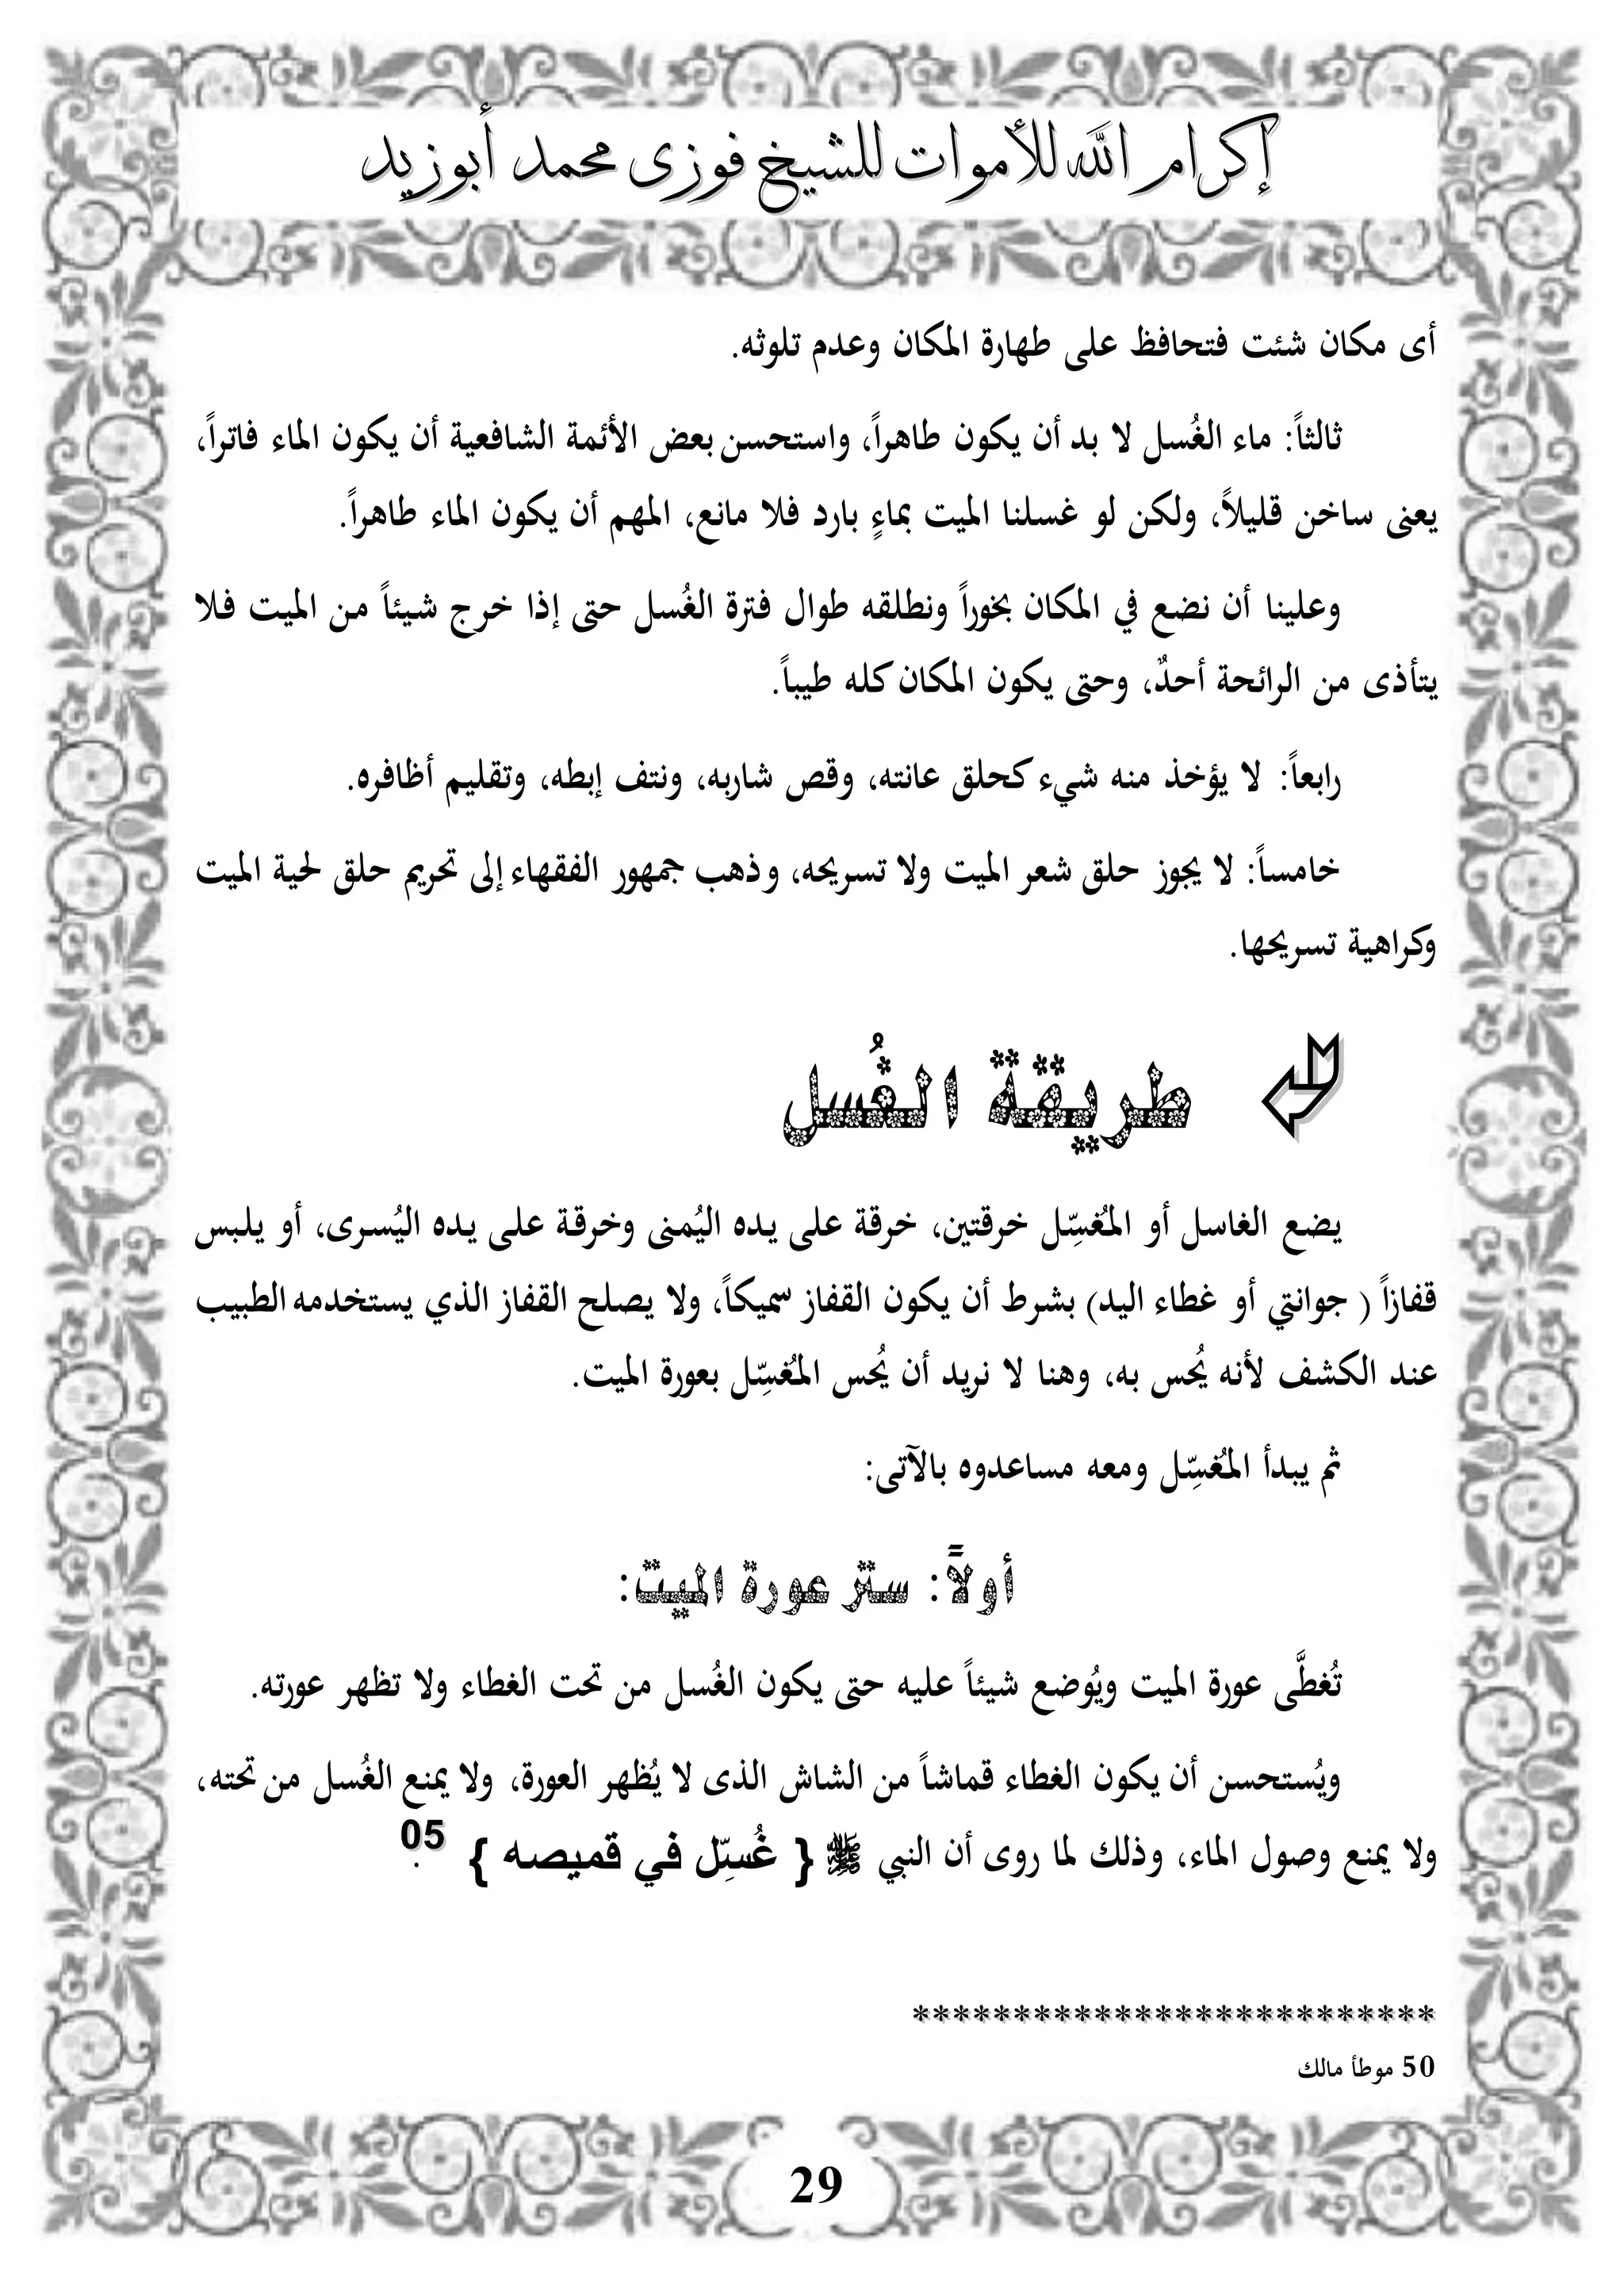 إكرام الله للأموات للشيخ فوزى محمد أبوزيد
أى مكان شئت فتحافظ على طهارة المكان وعدم تلوثه.
ثالثاً: ماء الغُسل لا بد أن يكون طاهراً، واستحسن بعض الأئمة الشافعية أن يكون الماء فاتراً،
يعنى ساخن قليلاً، ولكن لو غسلنا الميت بماءٍ بارد فلا مانع، المهم أن يكون الماء طاهراً.
وعلينا أن نضع في المكان بخوراً ونطلقه طوال فترة الغُسل حتى إذا خرج شيئاً من الميت فلا
يتأذى من الرائحة أحدٌ، وحتى يكون المكان كله طيباً.
رابعاً: لا يؤخذ منه شيء كحلق عانته، وقص شاربه، ونتف إبطه، وتقليم أظافره.
خامساً: لا يجوز حلق شعر الميت ولا تسريحه، وذهب جمهور الفقهاء إلى تحريم حلق لحية الميت
وكراهية تسريحها.
طريقة الغُسل
يضع الغاسل أو المُغسِّل خرقتين، خرقة على يده اليُمنى وخرقة على يده اليُسرى، أو يلبس
قفازاً ( جوانتي أو غطاء اليد) بشرط أن يكون القفاز سميكاً، ولا يصلح القفاز الذي يستخدمه الطبيب
عند الكشف لأنه يُحس به، وهنا لا نريد أن يُحس المُغسِّل بعورة الميت.
ثم يبدأ المُغسِّل ومعه مساعدوه بالآتى:
أولاً: ستر عورة الميت:
تُغطَّى عورة الميت ويُوضع شيئاً عليه حتى يكون الغُسل من تحت الغطاء ولا تظهر عورته.
ويُستحسن أن يكون الغطاء قماشاً من الشاش الذى لا يُظهر العورة، ولا يمنع الغُسل من تحته،
ولا يمنع وصول الماء، وذلك لما روى أن النبي ﷺ { غُسِّل في قميصه } 05.
**************************
50 موطأ مالك
29